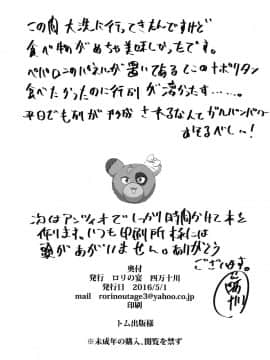 この間大洗に行ってきたんですけど
食べ物がめちゃ美味しかったです。
ペパロニのパネルが置いてあるしこのナポリタン
食べたかったのに行列が凄かったす……。
平日でも列が形成されるなんてガルパンパワー
おそるべし…!
次はアンツィオでしっかり時間かけて本を
作ります。いつも印刷所様には
頭があがいません。ありがとう
ございます。
四万十川
奥付
発行 ロリの宴 四万十川
発行日 2016/5/1
mail rorinoutage3@yahoo.co.jp
印刷
トム出版様
※未成年の購入、閲覧を禁ず